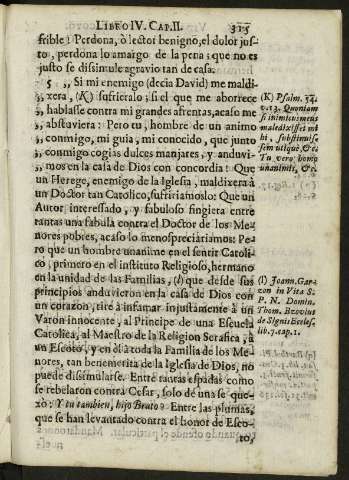 LIBRO IV. CAP. II. 315
frible! Perdona, ò lector benigno, el dolor jus-
to, perdona lo amargo de la pena; que no es
justo se dissimule agravio tan de casa.
5 „ Si mi enemigo (decia David) me maldi-
„ xera, (K) sufrieralo; si el que me aborrece
„ hablasse contra mi grandes afrentas, acaso me
„ abstuviera: Pero tu, hombre de un animo
„ conmigo, mi guia, mi conocido, que junto
„ conmigo cogias dulces manjares, y anduvi-
„ mos en la casa de Dios con concordia! Que
un Herege, enemigo de la Iglesia, maldixera à
un Doctor tan Catolico, sufririamoslo: Que un
Autor interessado, y fabuloso fingiera entre
tantas una fabula contra el Doctor de los Me-
nores pobres, acaso lo menospreciàriamos: Pe-
ro que un hombre unanime en el sentir Catoli-
co; primero en el instituto Religioso, hermano
en la unidad de las Familias, (l) que desde sus
principios anduvieron en la casa de Dios con
un corazon, tire à infamar injustamente à un
Varon innocente, al Principe de una Escuela
Catolica, al Maestro de la Religion Serafica, à
un Escoto, y en èl à toda la Familia de los Me-
nores, tan benemerita de la Iglesia de Dios, no
puede dissimularse. Entre tantas espadas como
se rebelaron contra Cesar, solo de una se que-
xò: Y tu tambien, hijo Bruto? Entre las plumas,
que se han levantado contra el honor de Esco-
to,
(K) Psalm. 54.
v. 13. Quoniam
si inimicus meus
maledixisset mi
hi, sustinuis-
sem utique, &c.
Tu verò homo
unanimis, &c.
(l) Joann. Gar-
zon in Vita S.
P. N. Domin.
Thom. Bzovius
de Signis Eccles.
lib. 7. cap. 1.